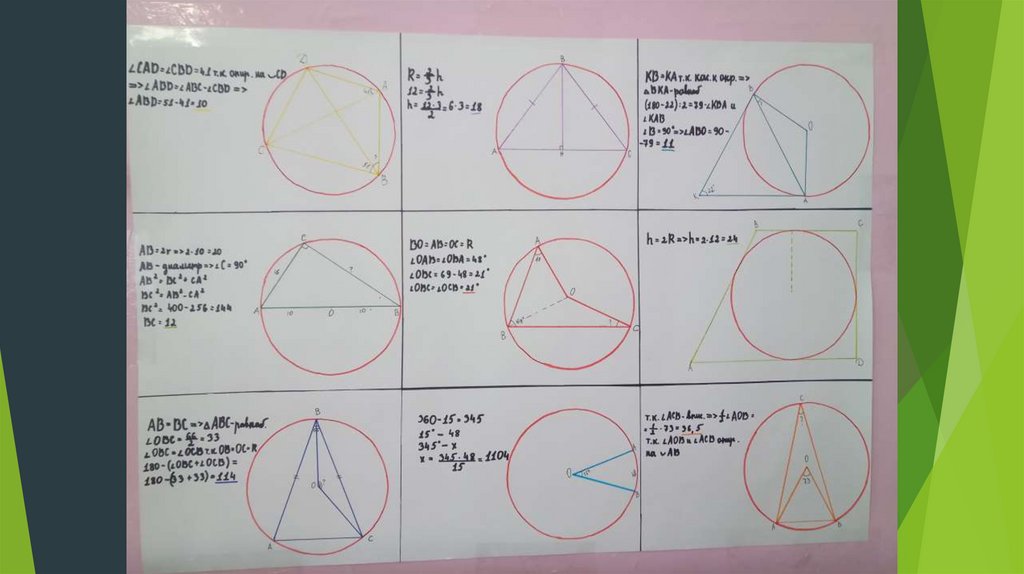 ∠CAD=∠CBD=41 т.к. опир. на ◡CD
=>∠ABD=∠ABC-∠CBD =>
∠ABD=51-41=10
D
A
C
B
R=⅔h
12=⅔h
h=12·3/2=6·3=18
B
A
H
C
KB=KA т.к. кас. к окр. =>
△BKA-равноб
(180-22):2=79-∠KBA и
∠KAB
∠B=90°=>∠ABO=90-
-79=11
B
O
K
22°
A
AB=2r=>2·10=20
AB-диаметр=>∠C=90°
AB²=BC²+CA²
BC²=AB²-CA²
BC²=400-256=144
BC=12
C
16
?
A
10
O
10
B
BO=AB=OC=R
∠OAB=∠OBA=48°
∠OBC=69-48=21°
∠OBC=∠OCB=21°
A
48
O
69°
?
B
C
h=2R=>h=2·12=24
B
C
A
D
AB=BC=>△ABC-равноб.
∠OBC=66/2=33
∠OBC=∠OCB т.к. OB=OC=R
180-(∠OBC+∠OCB)=
180-(33+33)=114
B
O
?
A
C
360-15=345
15°-48
345°-x
x=345·48/15=1104
O
15°
B
т.к. ∠ACB-впис.=>½∠AOB=
=½·73=36,5
т.к. ∠AOB и ∠ACB опир.
на ◡AB
C
?
O
73
A
B